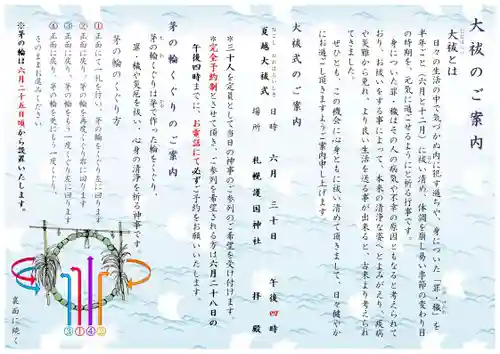 大祓のご案内
大祓とは
日々の生活の中で気づかぬ内に犯す過ちや、身についた「罪・穢」を
半年ごと（六月と十二月）に祓い清め、体調を崩し易い季節の変わり目
の時期を、元気に過ごせるように祈る行事です。
身についた罪・穢はその人の病気や不幸の原因ともなると考えられて
おり、お祓いをする事によって、本来の清浄な姿へとよみがえり、疫病
や災難から免れ、より良い生活を送る事が出来ると、古来より考えられ
てきました。
ぜひとも、この機会に心身ともに祓い清めて頂きまして、日々健やか
にお過ごし頂きますようご案内申し上げます。
大祓式のご案内
夏越大祓式
なごし おおはらえしき
日時 六月 三十日 午後四時
場所 札幌護国神社 拝殿
＊三十人を定員として当日の神事のご参列のご希望を受け付けます。
＊完全予約制とさせて頂き、ご参列を希望される方は六月二十八日の
午後四時までに、お電話にて必ずご予約をお願いいたします。
茅の輪くぐりのご案内
茅の輪くぐりは茅で作った輪をくぐり、
罪・穢や災厄を祓い、心身の清浄を祈る神事です。
茅の輪のくぐり方
①正面にて一礼を行い、茅の輪をくぐり左に回ります
②正面に戻り、茅の輪を再度くぐり右に回ります
③正面に戻り、茅の輪をもう一度くぐり左に回ります
④正面に戻り、茅の輪を更にもう一度くぐり、
そのままお進みください
＊茅の輪は六月二十五日頃から設置いたします。
③①④②
裏面に続く